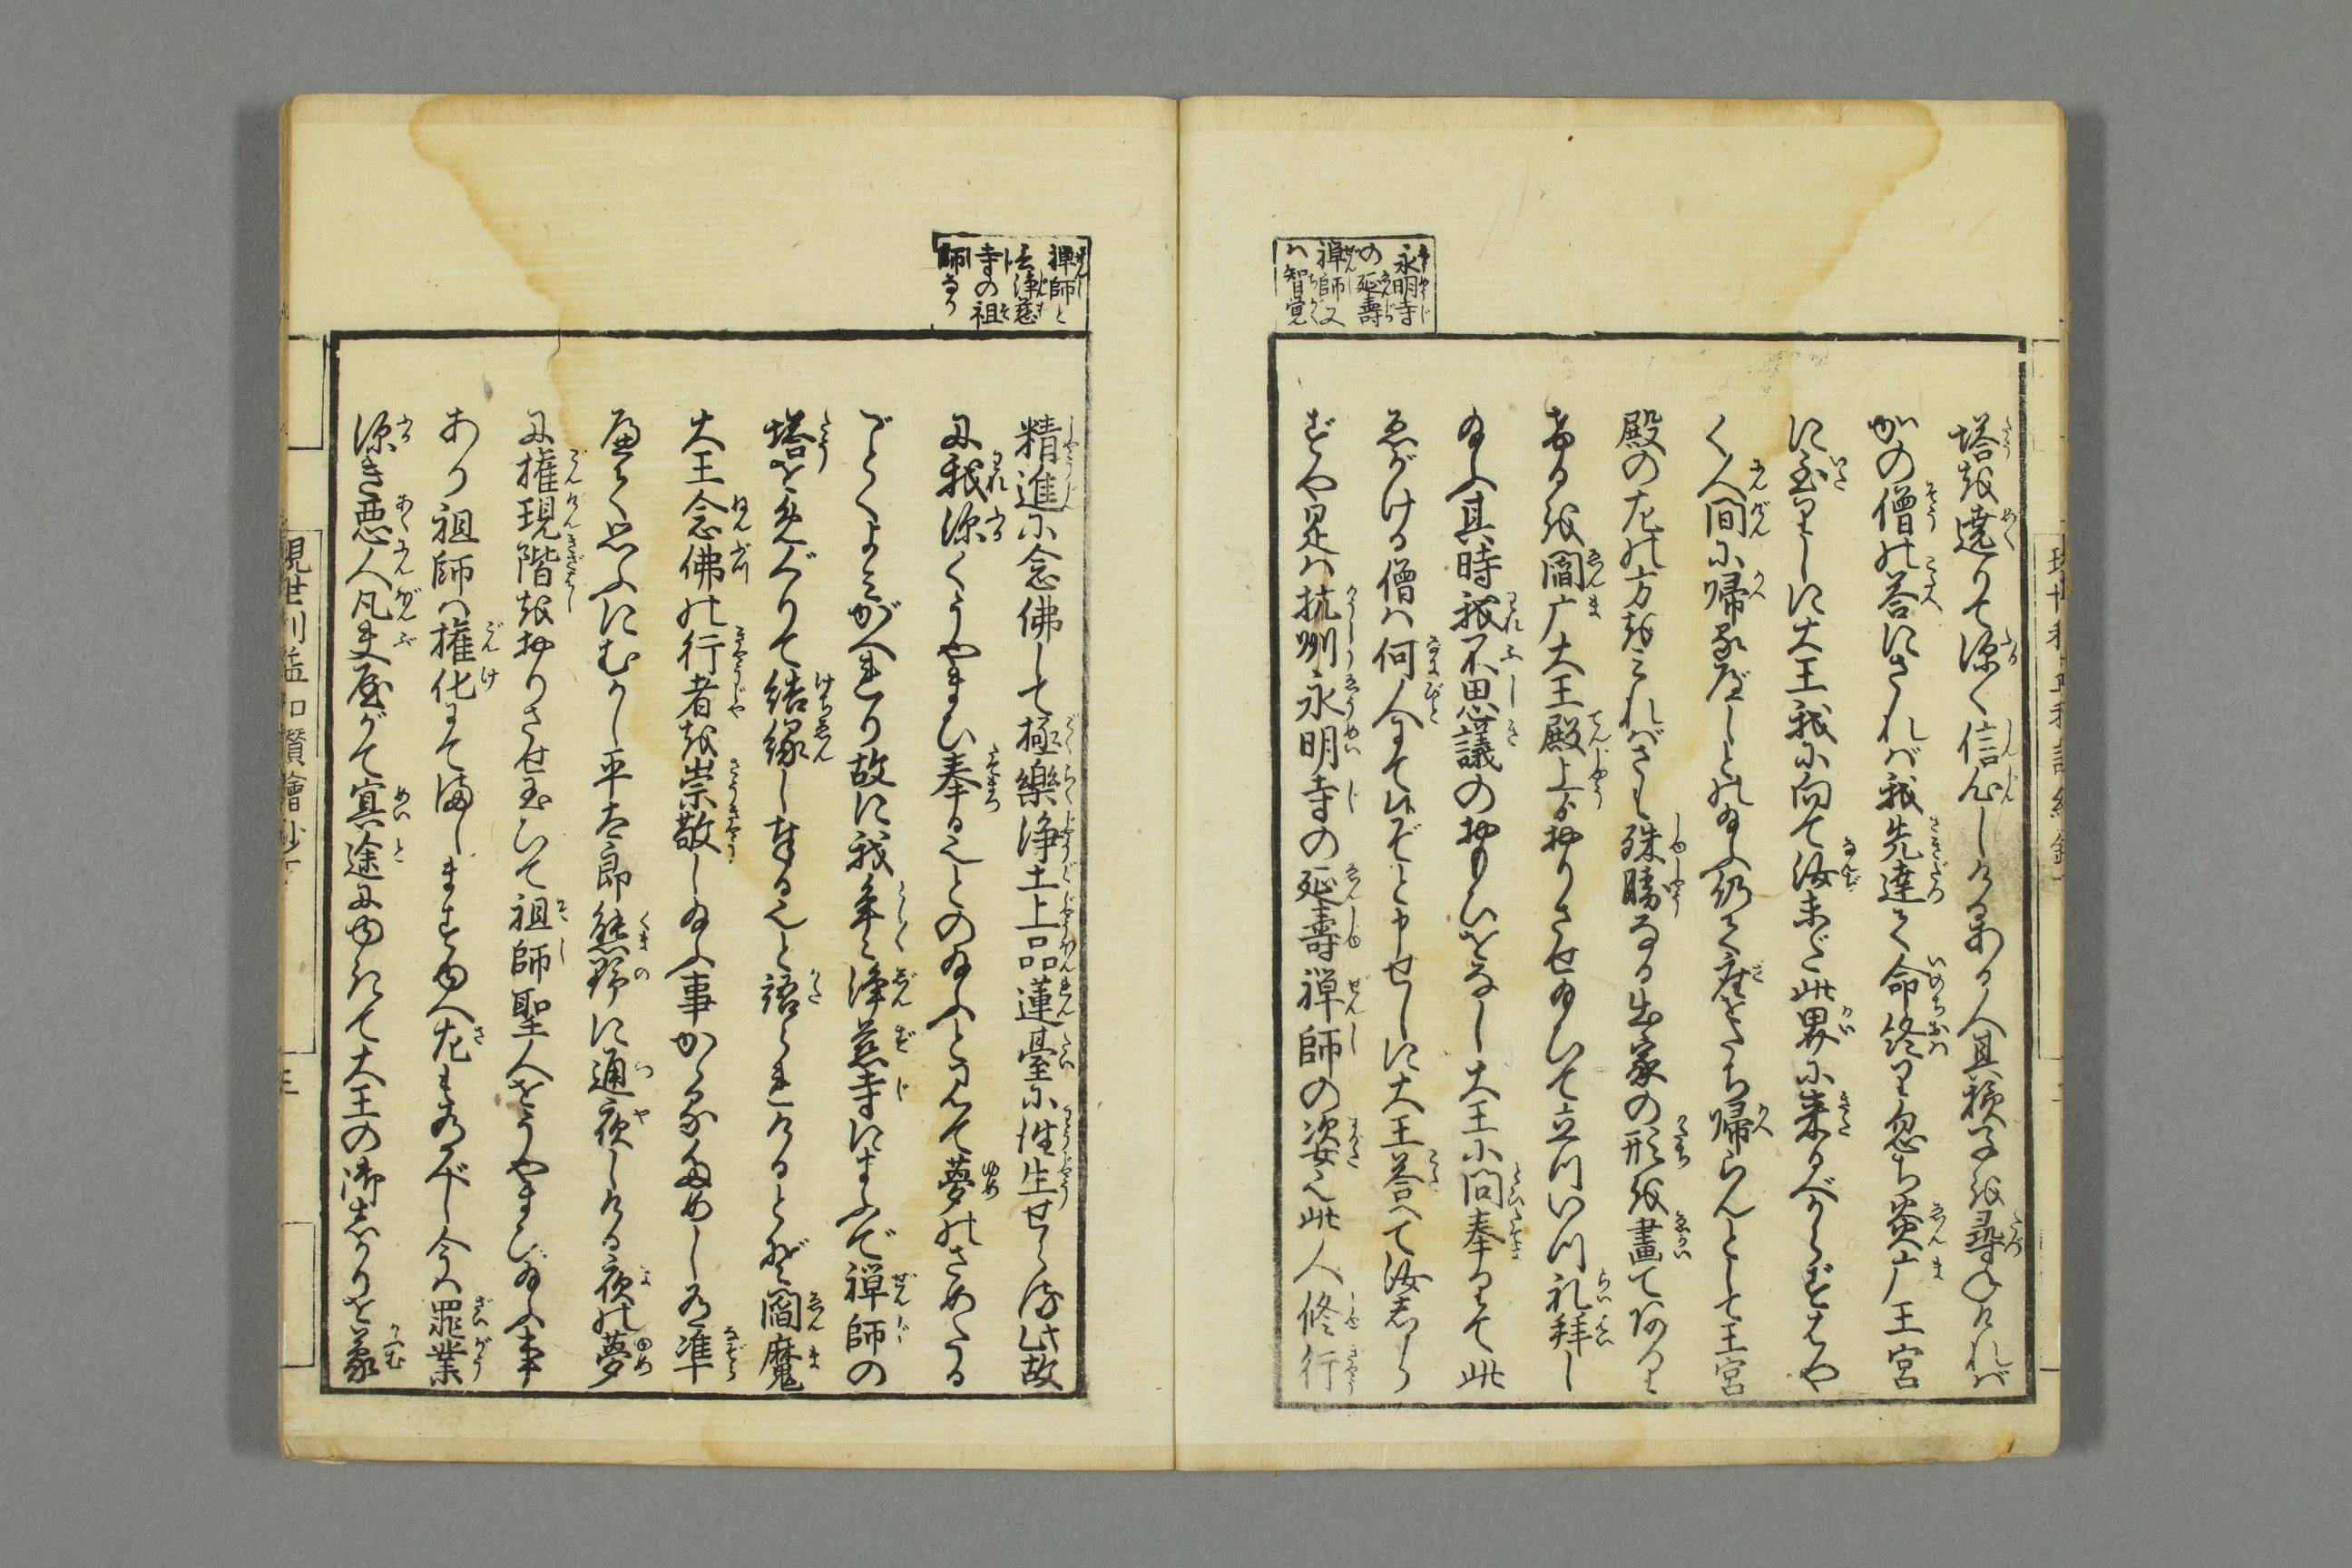 永明寺
の延壽
禅師又
ハ智覚
塔を遶りて深く信心しける若ある人其稜子を尋ねければ
かの僧の答にされば我先達て命終り忽ち炎广王宮
に至りしに大王我に向て汝未だ此界に来るべからずはや
く人間に帰るべしとの給ふ仍て座をたち帰らんとして王宮
殿の左の方をみればさも殊勝なる出家の形を畫て
ある を閻广大王殿上よりおりさせ給ひて立つ いつ礼拝し
給ふ其時我不思議のおもひをなし大王に問奉りて此
ゑがける僧ハ何人にて候ぞと申せしに大王答へて汝しら
ずや是ハ杭州永明寺の延壽禅師の姿也此人修行
禅師と
云浄慈
寺の祖
師なり
精進に念佛して極樂浄土上品蓮臺に往生せらる此故
に我深くうやまひ奉る也との給ふと見て夢のさめたる
ごとくよみがへれり故に我年々浄慈寺にまふで禅師の
塔をめぐりて結縁し奉る也と語られけるとぞ閻魔
大王念佛の行者を崇敬し給ふ事かゝるためしに準
へて思ふにむかし平太郎熊野に通夜しける夜の夢
に権現階をおりさせ玉ひて祖師聖人をうやまひ給ふ事
あり祖師ハ権化にてましますゆへ左もあるべし今ハ罪業
深き悪人凡夫やがて冥途にゆきて大王の御しかりを蒙
現世利益和讃繪抄下